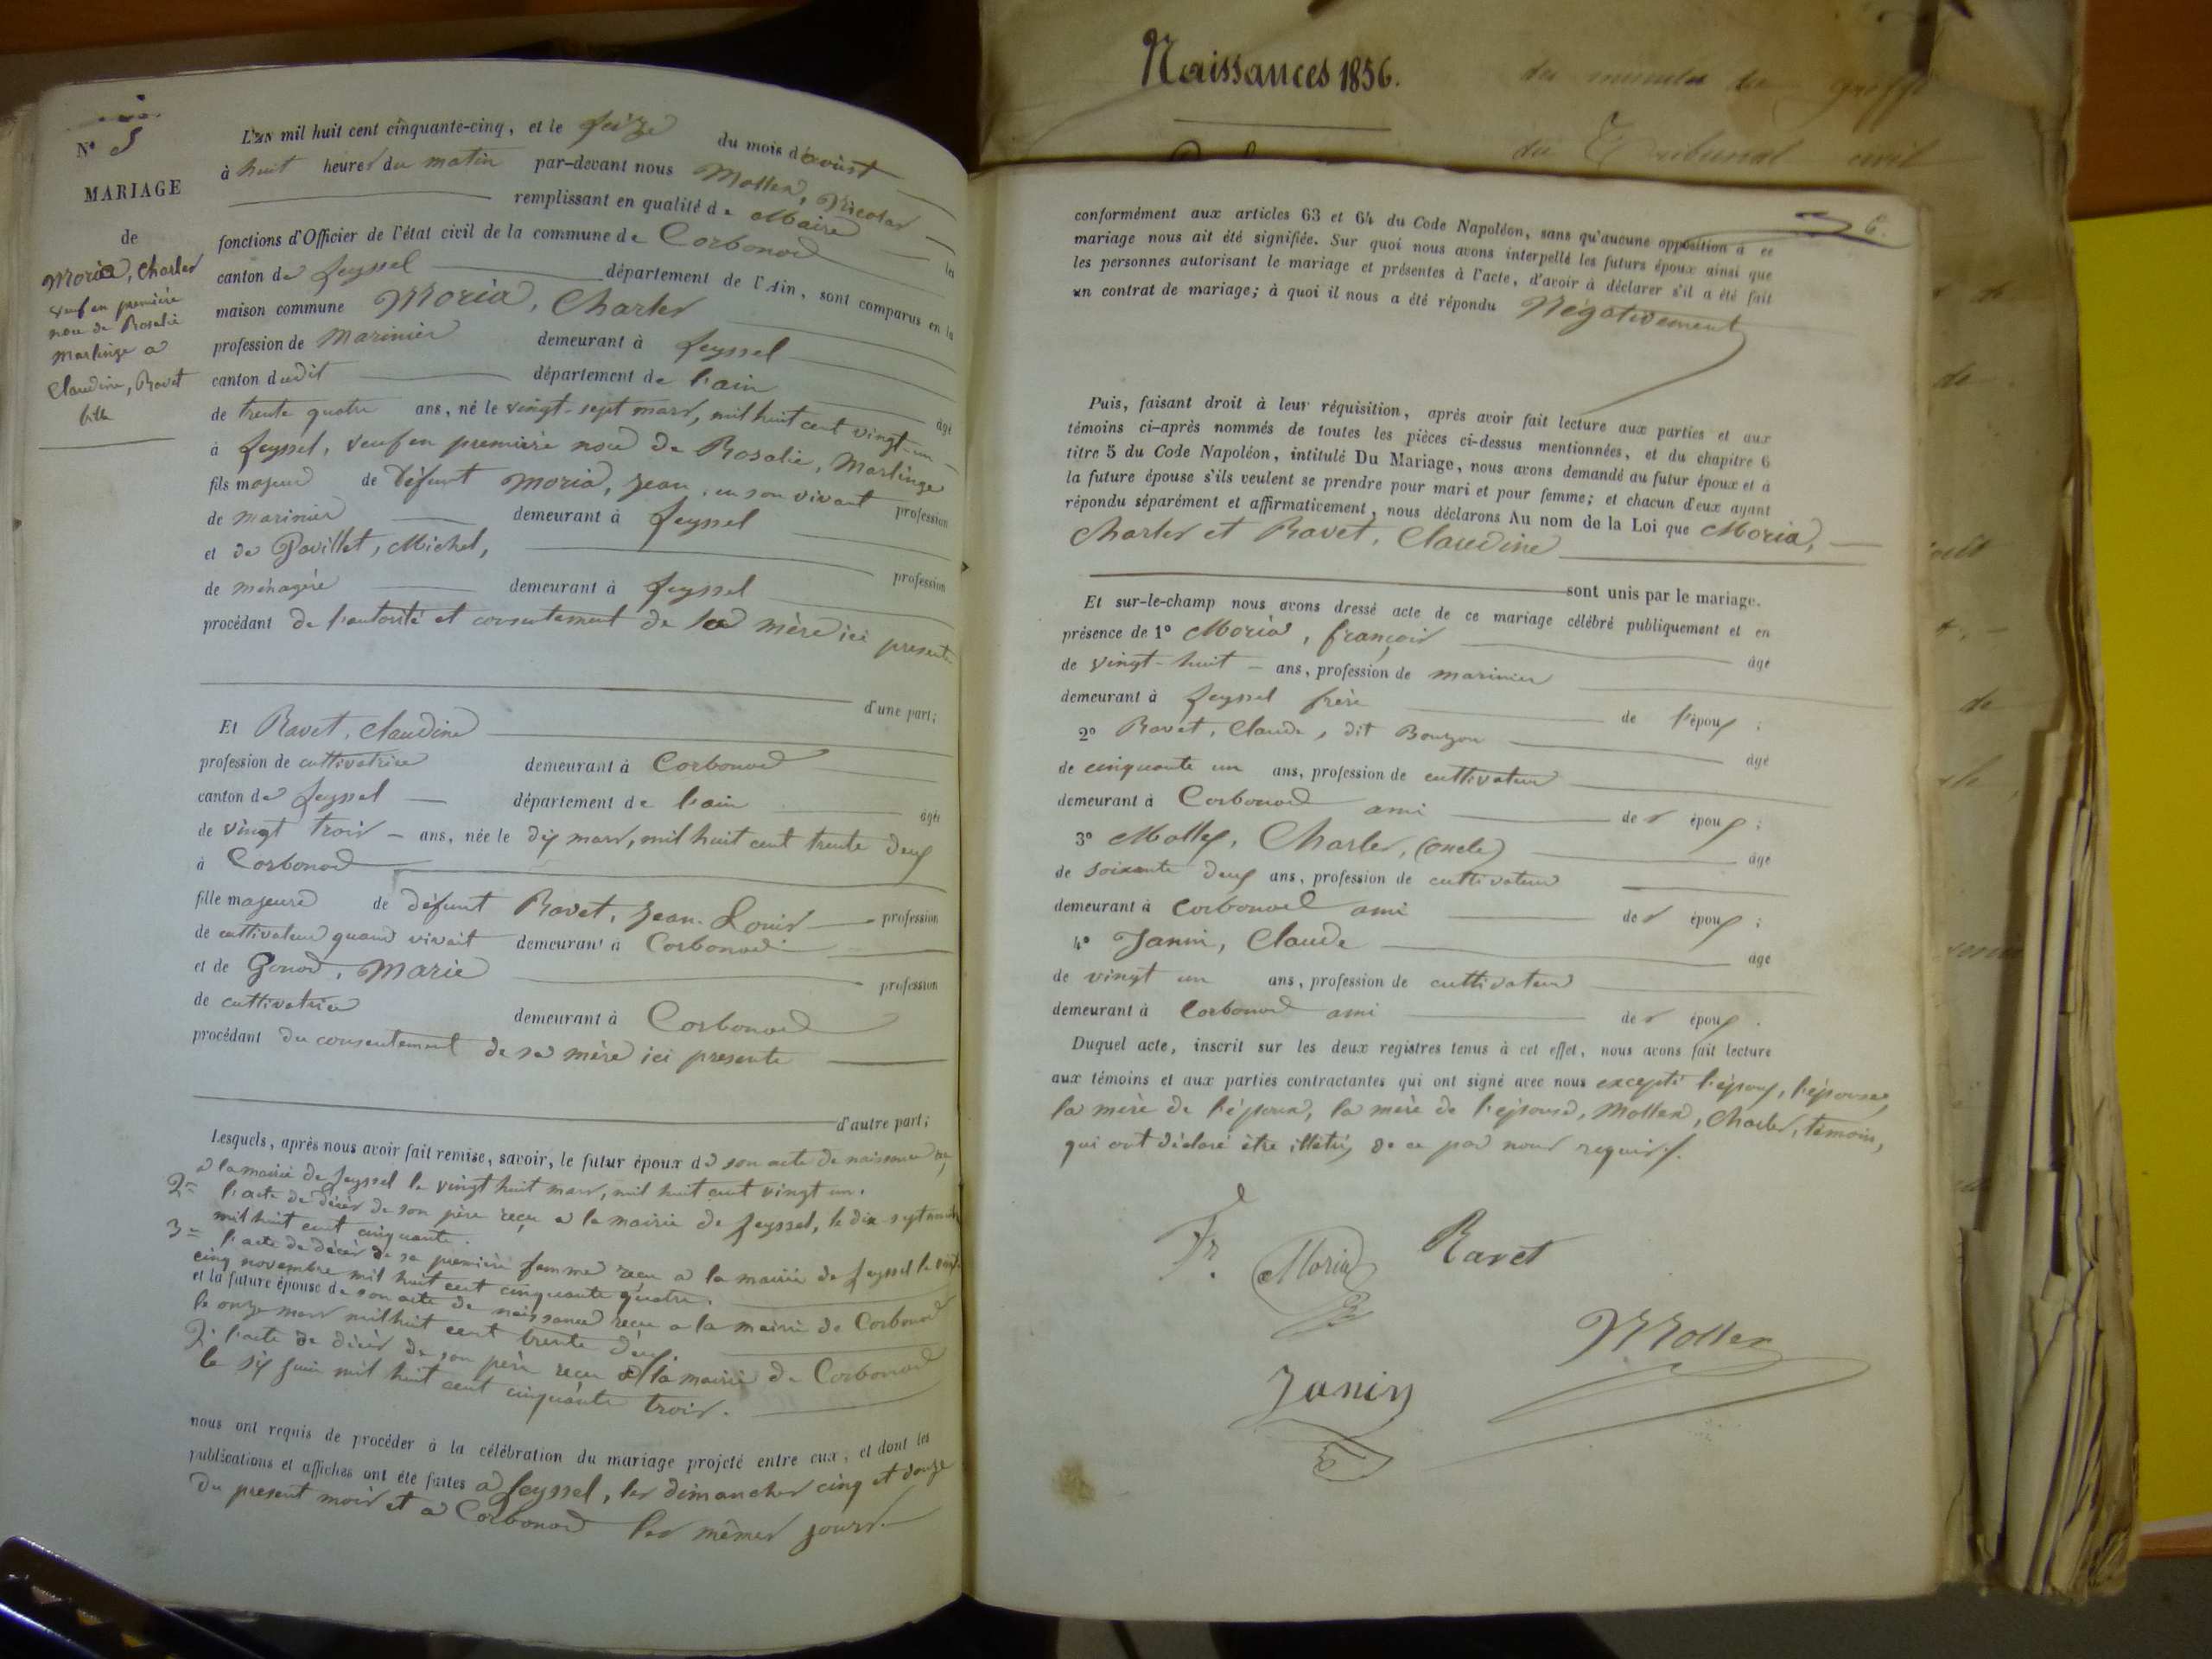 N° 5
MARIAGE
de
Moria, Charles
veuf en première
noce de Rosalie
Marlinge a
Claudine, Ravet
fille
L'an mil huit cent cinquante-cinq, et le seize du mois d'août
à huit heures du matin par-devant nous Mollex, Nicolas
remplissant en qualité de Maire les
fonctions d'Officier de l'état civil de la commune de Corbonod
canton de Seyssel département de l'Ain, sont comparus en la
maison commune Moria, Charles
profession de marinier demeurant à Seyssel
canton dudit département de l'ain âgé
de trente quatre ans, né le vingt-sept mars, mil huit cent vingt-un
à Seyssel, veuf en première noce de Rosalie, Marlinge
fils majeur de défunt Moria, Jean, en son vivant profession
de marinier demeurant à Seyssel
et de Pavillet, Michel, profession
de ménagère demeurant à Seyssel
procédant de l'autorité et consentement de sa mère ici presente
d'une part;
Et Ravet, Claudine
profession de cultivatrice demeurant à Corbonod
canton de Seyssel département de l'ain âgée
de vingt trois ans, née le dix mars, mil huit cent trente deux
à Corbonod
fille majeure de défunt Ravet, Jean-Louis profession
de cultivateur quand vivait demeurant à Corbonod
et de Gonod, Marie profession
de cultivatrice demeurant à Corbonod
procédant du consentement de sa mère ici presente
d'autre part;
Lesquels, après nous avoir fait remise, savoir, le futur époux de son acte de naissance
a la mairie de Seyssel le vingt huit mars, mil huit cent vingt un.
2° l'acte de décès de son père reçu a la mairie de Seyssel, le dix-sept
mil huit cent cinquante.
3° l'acte de décès de sa première femme reçu a la mairie de Seyssel le vingt
cinq novembre mil huit cent cinquante quatre.
et la future épouse de son acte de naissance reçu a la mairie de Corbonod
le onze mars mil huit cent trente deux.
2° l'acte de décès de son père reçu a la mairie de Corbonod
le six juin mil huit cent cinquante trois.
nous ont requis de procéder à la célébration du mariage projeté entre eux, et dont les
publications et affiches ont été faites a Seyssel, les dimanches cinq et douze
du present mois et a Corbonod les mêmes jours.
Naissances 1856.
des minutes du greffe
du Tribunal civil
6.
conformément aux articles 63 et 64 du Code Napoléon, sans qu'aucune opposition à ce
mariage nous ait été signifiée. Sur quoi nous avons interpellé les futurs époux ainsi que
les personnes autorisant le mariage et présentes à l'acte, d'avoir à déclarer s'il a été fait
un contrat de mariage; à quoi il nous a été répondu Négativement
Puis, faisant droit à leur réquisition, après avoir fait lecture aux parties et aux
témoins ci-après nommés de toutes les pièces ci-dessus mentionnées, et du chapitre 6
titre 5 du Code Napoléon, intitulé Du Mariage, nous avons demandé au futur époux et à
la future épouse s'ils veulent se prendre pour mari et pour femme; et chacun d'eux ayant
répondu séparément et affirmativement, nous déclarons Au nom de la Loi que Moria,
Charles et Ravet, Claudine
sont unis par le mariage.
Et sur-le-champ nous avons dressé acte de ce mariage célébré publiquement et en
présence de 1° Moria, françois âgé
de vingt-huit ans, profession de marinier
demeurant à Seyssel frère de l'époux;
2° Ravet, Claude, dit Bouzon âgé
de cinquante un ans, profession de cultivateur
demeurant à Corbonod ami des époux;
3° Mollex, Charles, (oncle) âgé
de soixante deux ans, profession de cultivateur
demeurant à Corbonod ami des époux;
4° Janin, Claude âgé
de vingt un ans, profession de cultivateur
demeurant à Corbonod ami des époux.
Duquel acte, inscrit sur les deux registres tenus à cet effet, nous avons fait lecture
aux témoins et aux parties contractantes qui ont signé avec nous excepté l'époux, l'épouse,
la mère de l'époux, la mère de l'épouse, Mollex, Charles, témoin,
qui ont déclaré être illétrés de ce par nous requis.
Fr. Moria
Ravet
Mollex
Janin